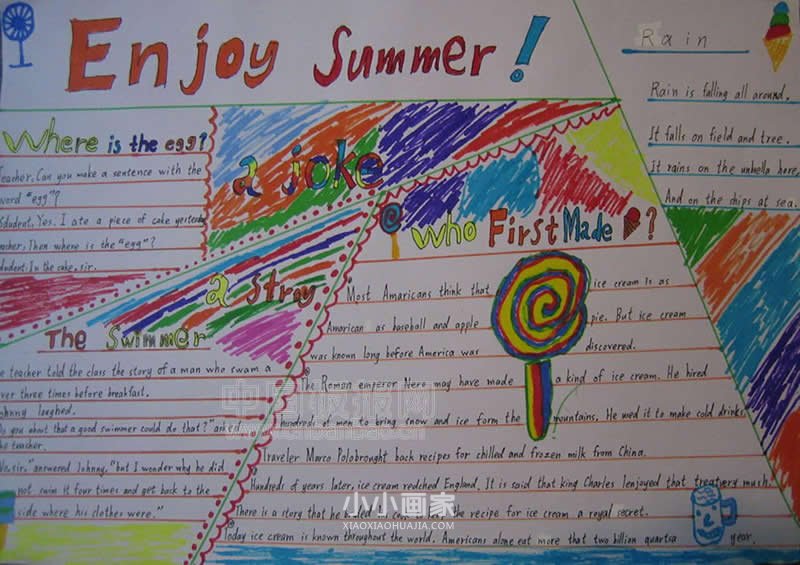 Enjoy Summer!
Rain
Rain is falling all around.
It falls on field and tree.
It rains on the unbella here,
And on the ships at sea.
Where is the egg?
Teacher, Can you make a sentence with the
word "egg"?
Student, Yes. I ate a piece of cake yesterday
Teacher; Then where is the "egg"?
Student: In the cake, sir.
a joke
a stray
The Swimmer
e teacher told the class the story of a man who swam a
ver three times before breakfast.
ohnny laoghed.
Do you about that a good swimmer could do that?" asked
the teacher.
No, sir." answered Johnny, "but I wonder why he did
not swim it four times and get back to the
side where his clothes were."
Who First Made ?
Most Amaricans think that ice cream is as
Amarican as baseball and apple pie. But ice cream
was known long before America was discovered.
The Roman emperor Nero may have made a kind of ice cream. He hired
hundreds of men to bring snow and ice form the mountains. He used it to make cold drinks.
Traveler Marco Polobrought back recipes for chilled and frozen milk from China.
Hundreds of years later, ice cream redched England. It is said that king Charles Ienjoyed that treatvery mush.
There is a story that he the recipe for ice cream a royal secret.
Today ice cream is known throughout the world. Americans alone eat more that two billion quartsa year.
小小画家
XIAOXIAOHUAJIA.COM